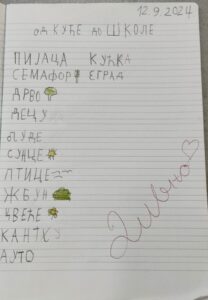 12.9.2024
ОД КУЋЕ ДО ШКОЛЕ
ПИЈАЦА КУЋКА
СЕМАФОР ЗГРАД
ДРВО
ДЕЦУ
ЉУДЕ
СУНЦЕ
ПТИЦЕ
ЖБУН
ЦВЕЋЕ
КАНТУ
АУТО